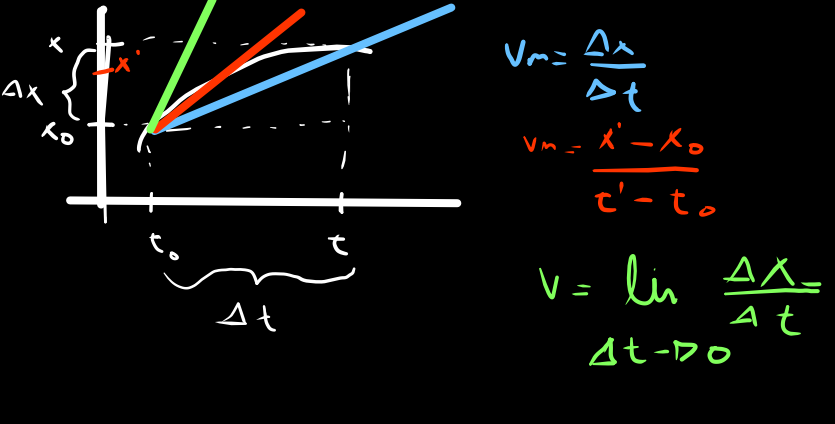 x
x'
Δx
x₀
t₀
t
Δt
Vm = Δx / Δt
vm = x' - x₀ / t' - t₀
V = lin Δx / Δt =
Δt → 0